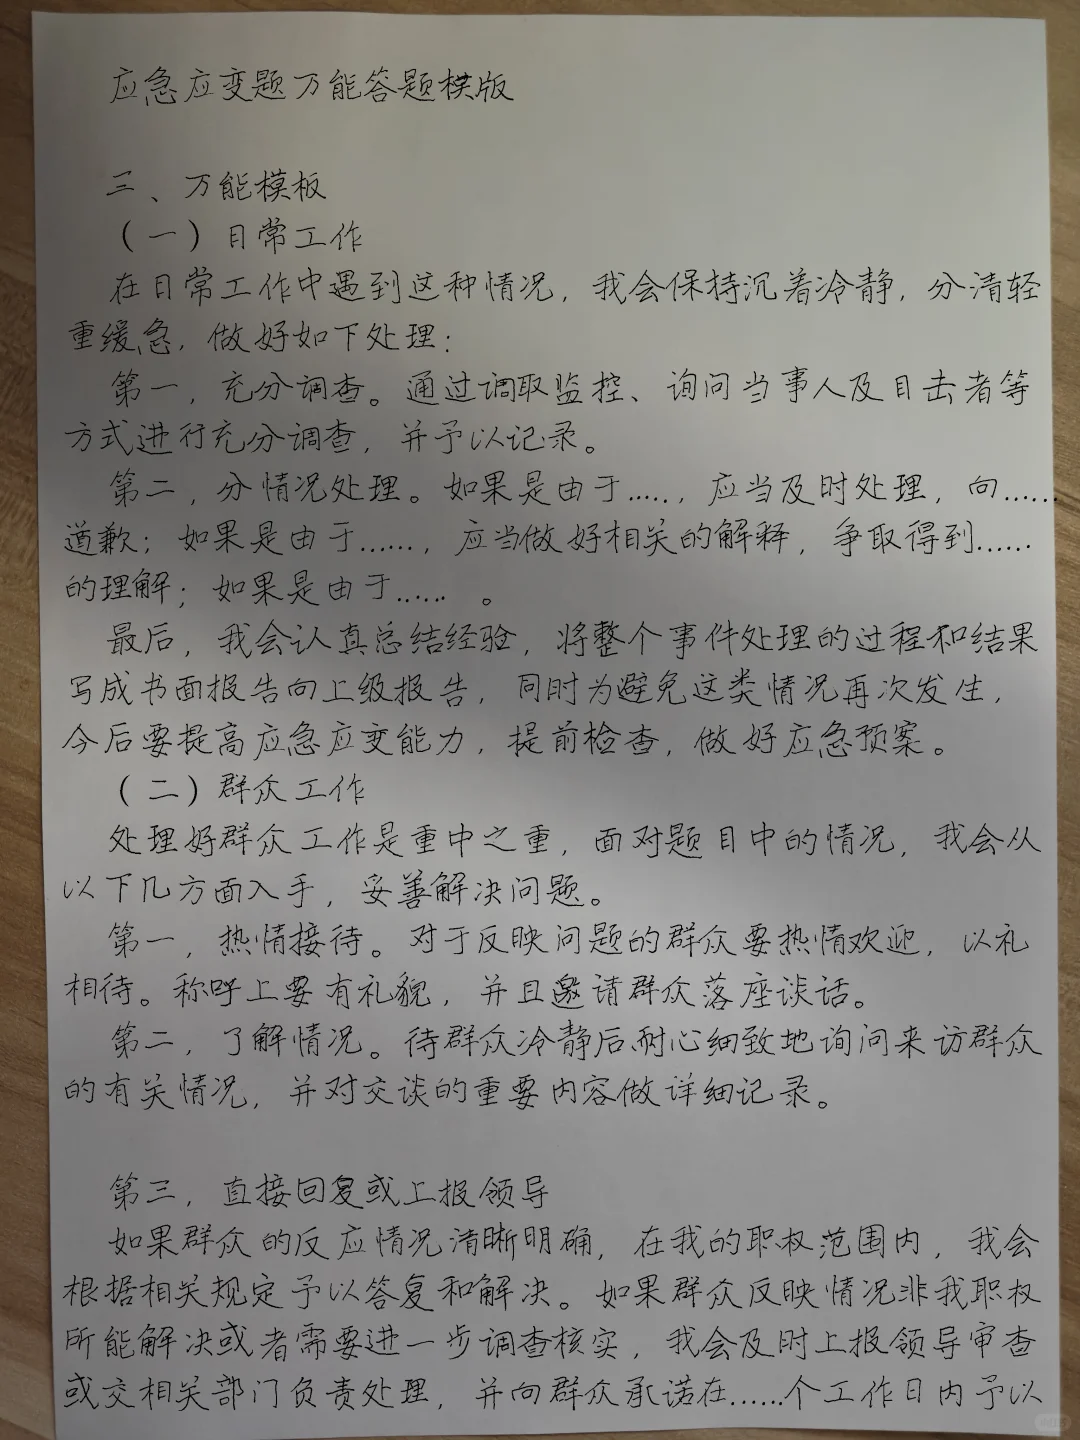 应急应变题万能答题模版
三、万能模板
（一）日常工作
在日常工作中遇到这种情况，我会保持沉着冷静，分清轻
重缓急，做好如下处理：
第一，充分调查。通过调取监控、询问当事人及目击者等
方式进行充分调查，并予以记录。
第二，分情况处理。如果是由于.....，应当及时处理，向......
道歉；如果是由于......，应当做好相关的解释，争取得到......
的理解；如果是由于...... 。
最后，我会认真总结经验，将整个事件处理的过程和结果
写成书面报告向上级报告，同时为避免这类情况再次发生，
今后要提高应急应变能力，提前检查，做好应急预案。
（二）群众工作
处理好群众工作是重中之重，面对题目中的情况，我会从
以下几方面入手，妥善解决问题。
第一，热情接待。对于反映问题的群众要热情欢迎，以礼
相待。称呼上要有礼貌，并且邀请群众落座谈话。
第二，了解情况。待群众冷静后耐心细致地询问来访群众
的有关情况，并对交谈的重要内容做详细记录。
第三，直接回复或上报领导
如果群众的反应情况清晰明确，在我的职权范围内，我会
根据相关规定予以答复和解决。如果群众反映情况非我职权
所能解决或者需要进一步调查核实，我会及时上报领导审查
或交相关部门负责处理，并向群众承诺在......个工作日内予以